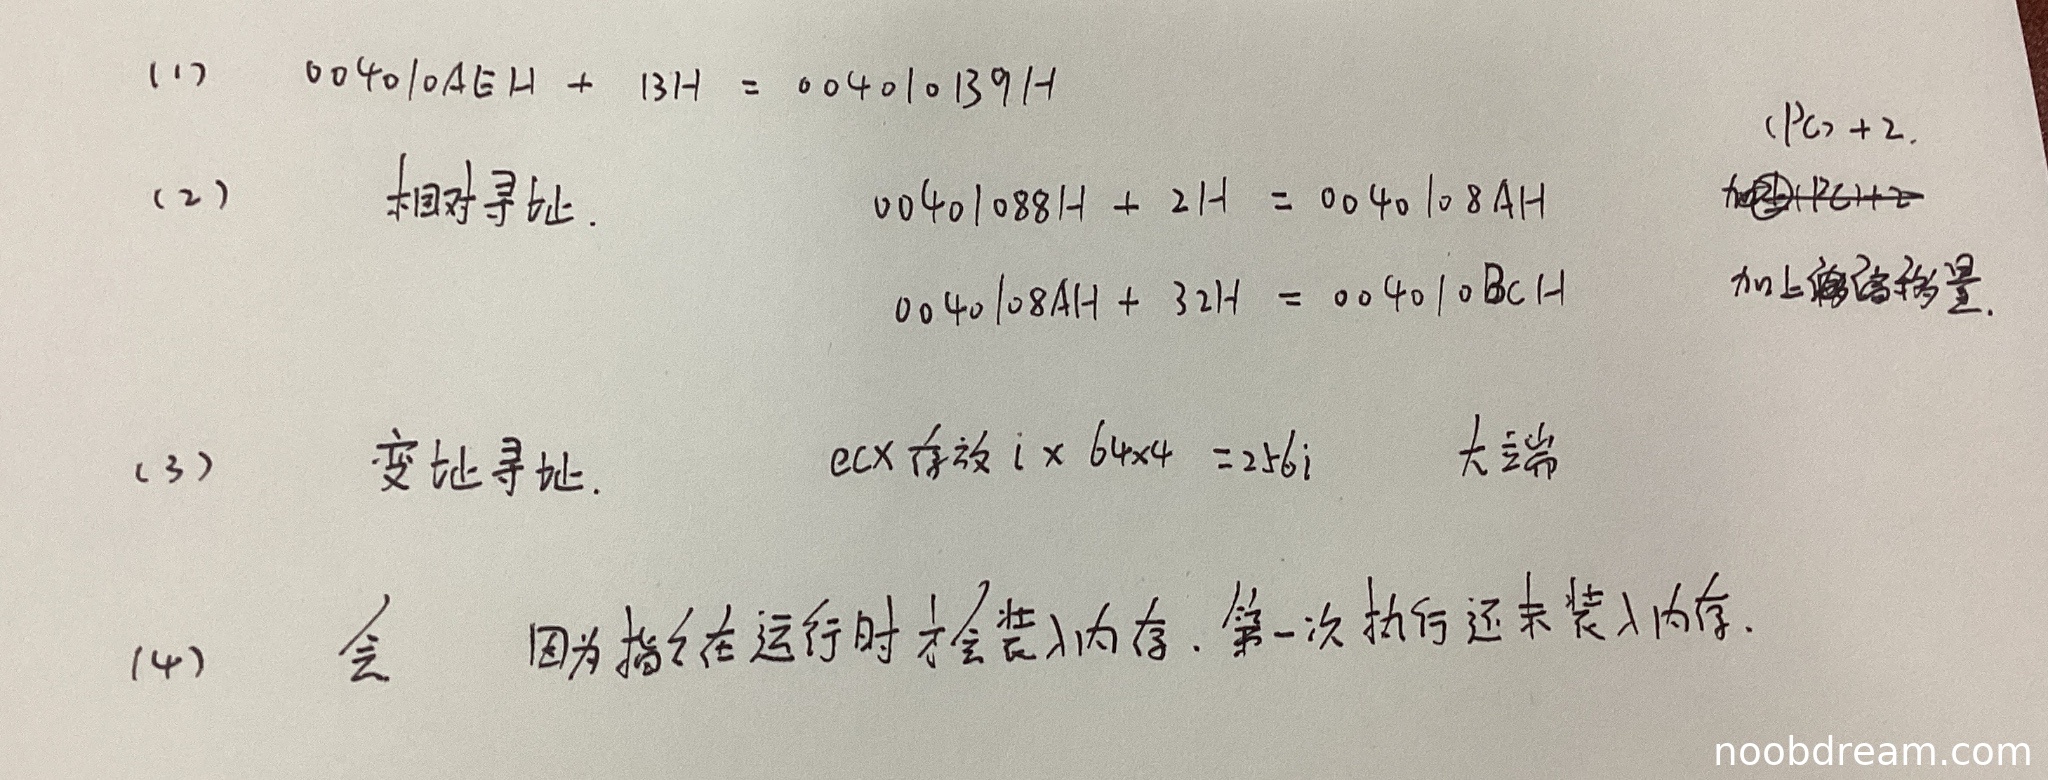 (1) 004010AEH + 13H = 004010139H
(PC) + 2.
(2) 相对寻址. 00401088H + 2H = 0040108AH
0040108AH + 32H = 004010BCH 加上偏移量.
(3) 变址寻址. ecx存放 i × 64×4 = 256i 大端
(4) 会 因为指令在运行时才会装入内存. 第一次执行还未装入内存.
noobdream.com